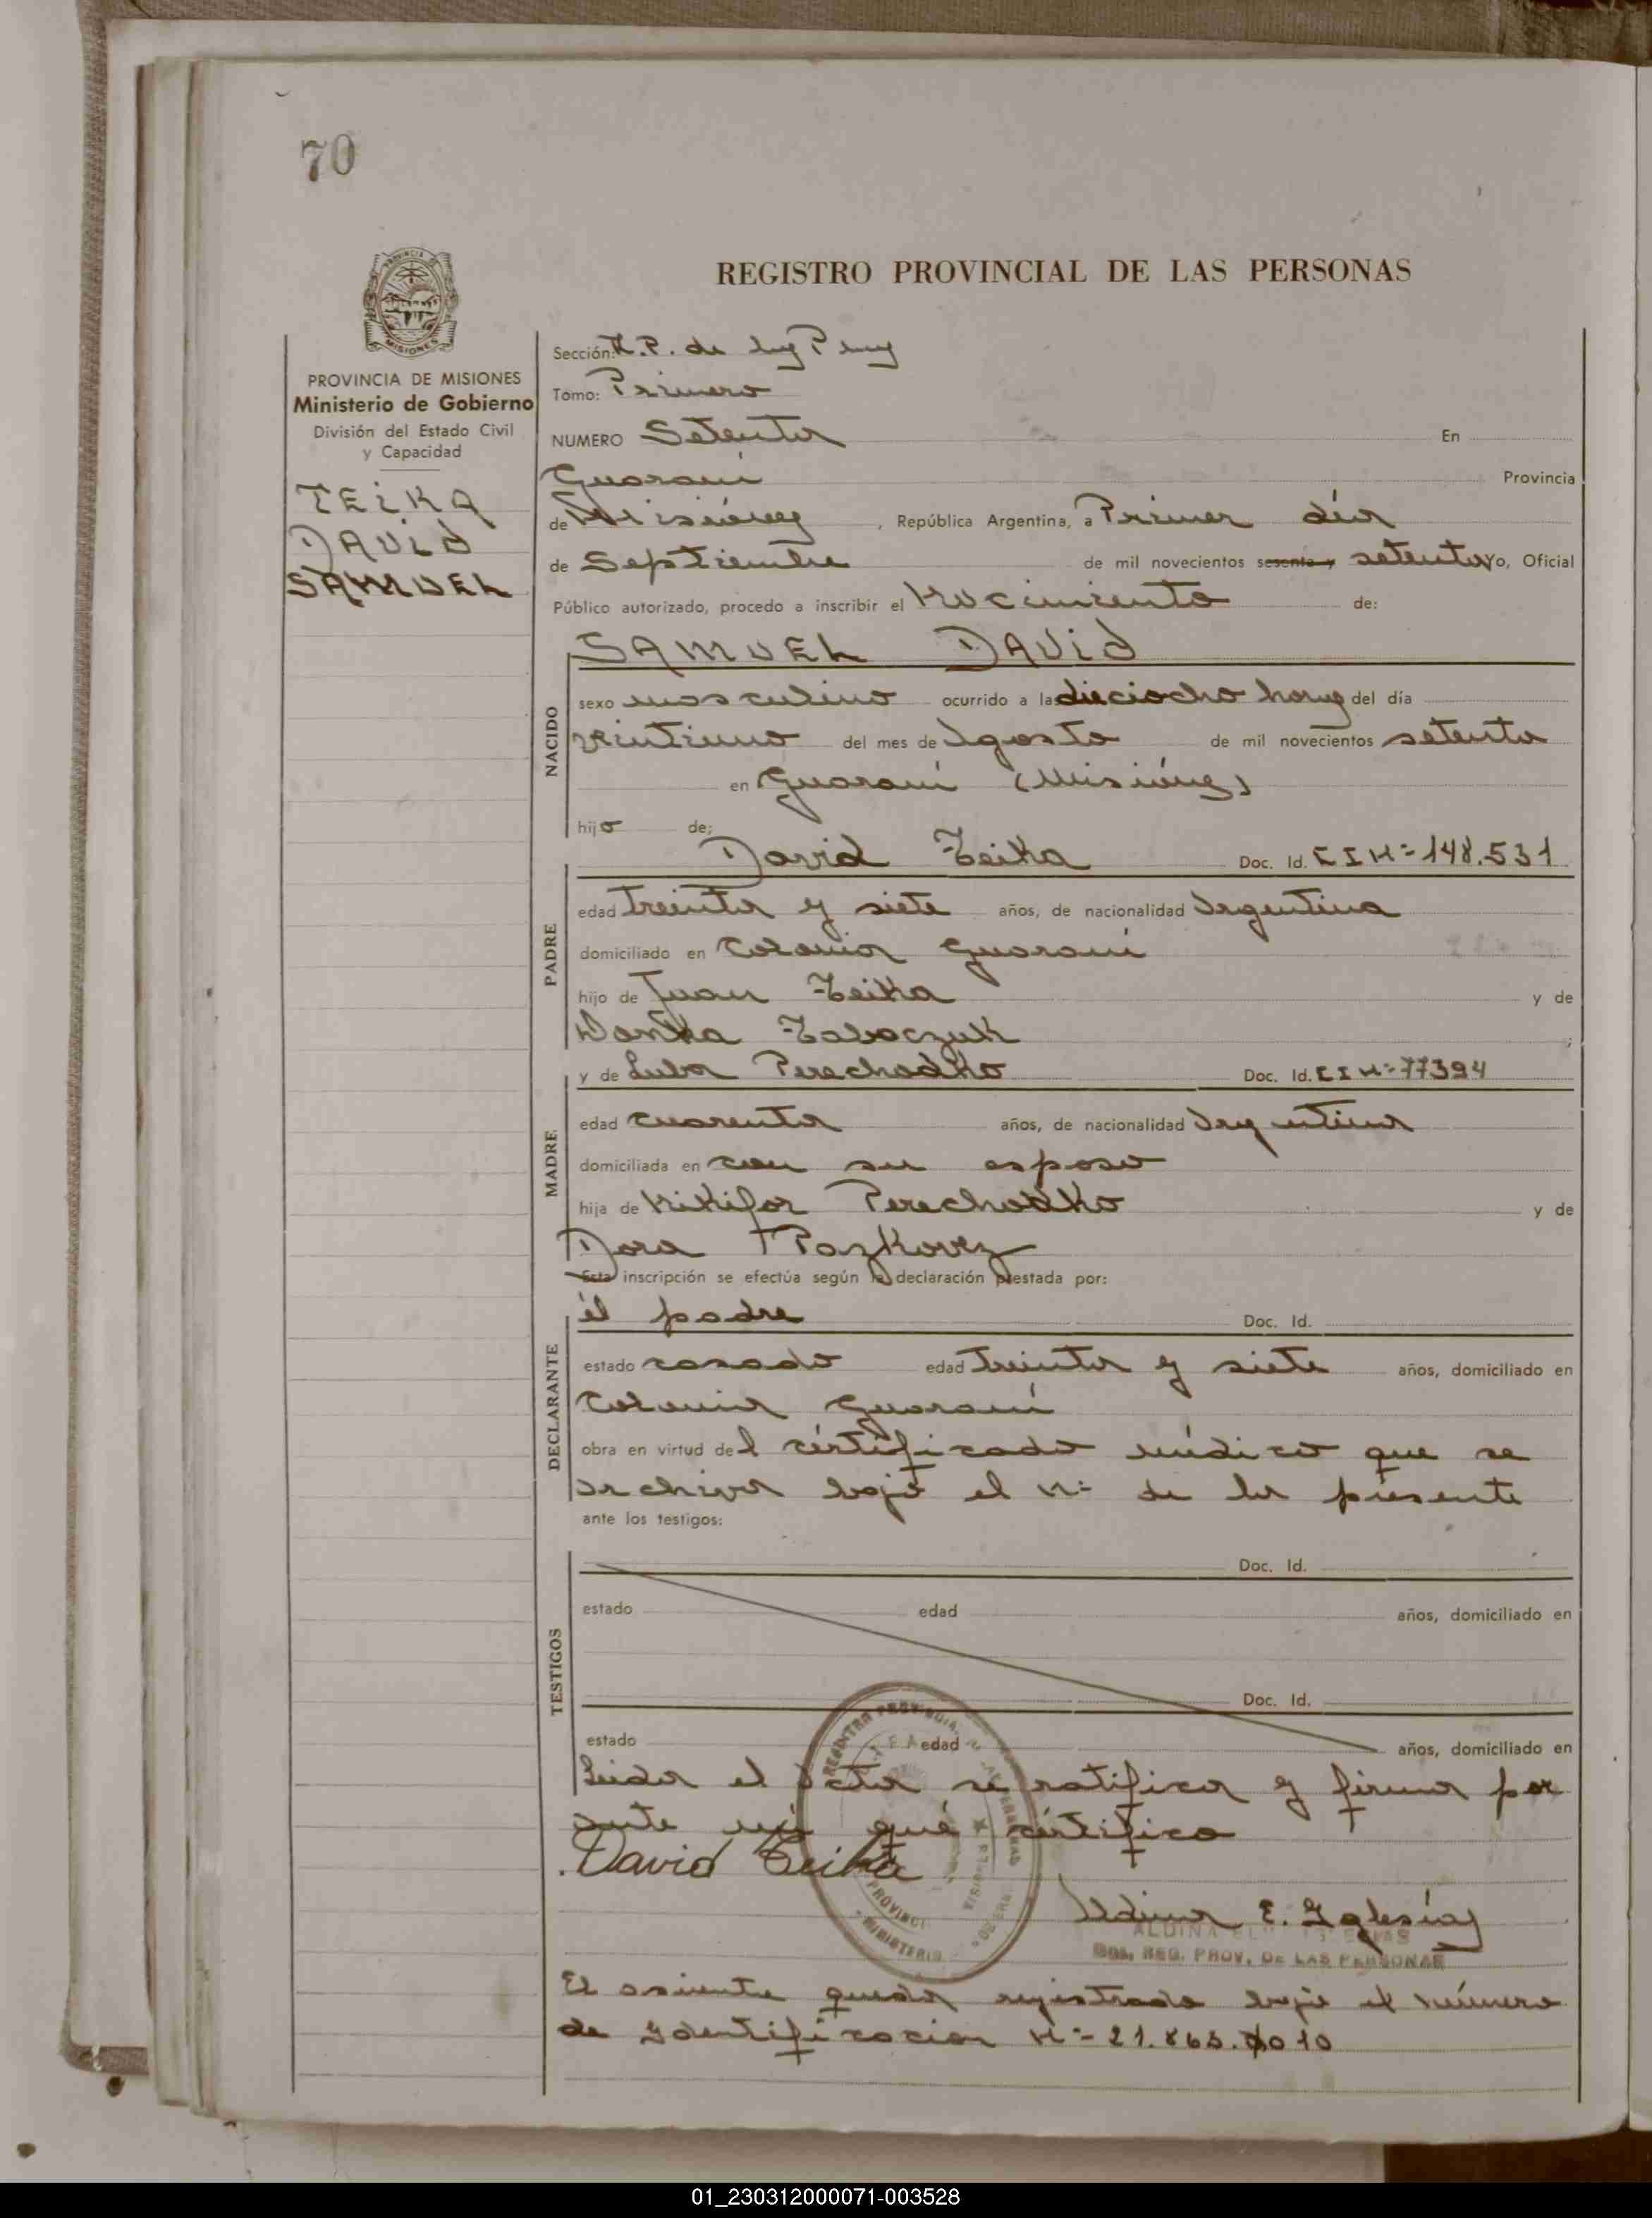 70
REGISTRO PROVINCIAL DE LAS PERSONAS
PROVINCIA DE MISIONES
Ministerio de Gobierno
División del Estado Civil
y Capacidad
TEIKA
DAVID
SAMUEL
Sección: R.P. de las P
Tomo: Primero
NUMERO Setenta En
Guaraní Provincia
de Misiones, República Argentina, a Primer día
de Septiembre de mil novecientos sesenta y setenta Yo, Oficial
Público autorizado, procedo a inscribir el Nacimiento de:
SAMUEL DAVID
NACIDO
sexo masculino ocurrido a la dieciocho horas del día
veintiuno del mes de Agosto de mil novecientos setenta
en Guaraní (Misiones)
hijo de;
David Teika Doc. Id. C I Nº 148.531
PADRE
edad treinta y siete años, de nacionalidad Argentina
domiciliado en Colonia Guaraní
hijo de Juan Teika y de
Tabaczuk
y de Luba Perechodko Doc. Id. C I Nº 77394
MADRE
edad cuarenta años, de nacionalidad Argentina
domiciliada en con su esposo
hija de Nikifor Perechodko y de
Dora Pazkovez
Esta inscripción se efectúa según la declaración prestada por:
él padre Doc. Id.
DECLARANTE
estado casado edad treinta y siete años, domiciliado en
Colonia Guaraní
obra en virtud del cértificado médico que se
archiva bajo el Nº de la présente
ante los testigos:
Doc. Id.
TESTIGOS
estado edad años, domiciliado en
Doc. Id.
estado edad años, domiciliado en
Leida el Acta se ratifica y firma por
ante mí qué cértifico
David Teika
Aldina E. Iglesias
REG. PROV. DE LAS PERSONAS
El asiento queda registrado bajo el número
de Identificacion Nº 21.863.010
01_230312000071-003528